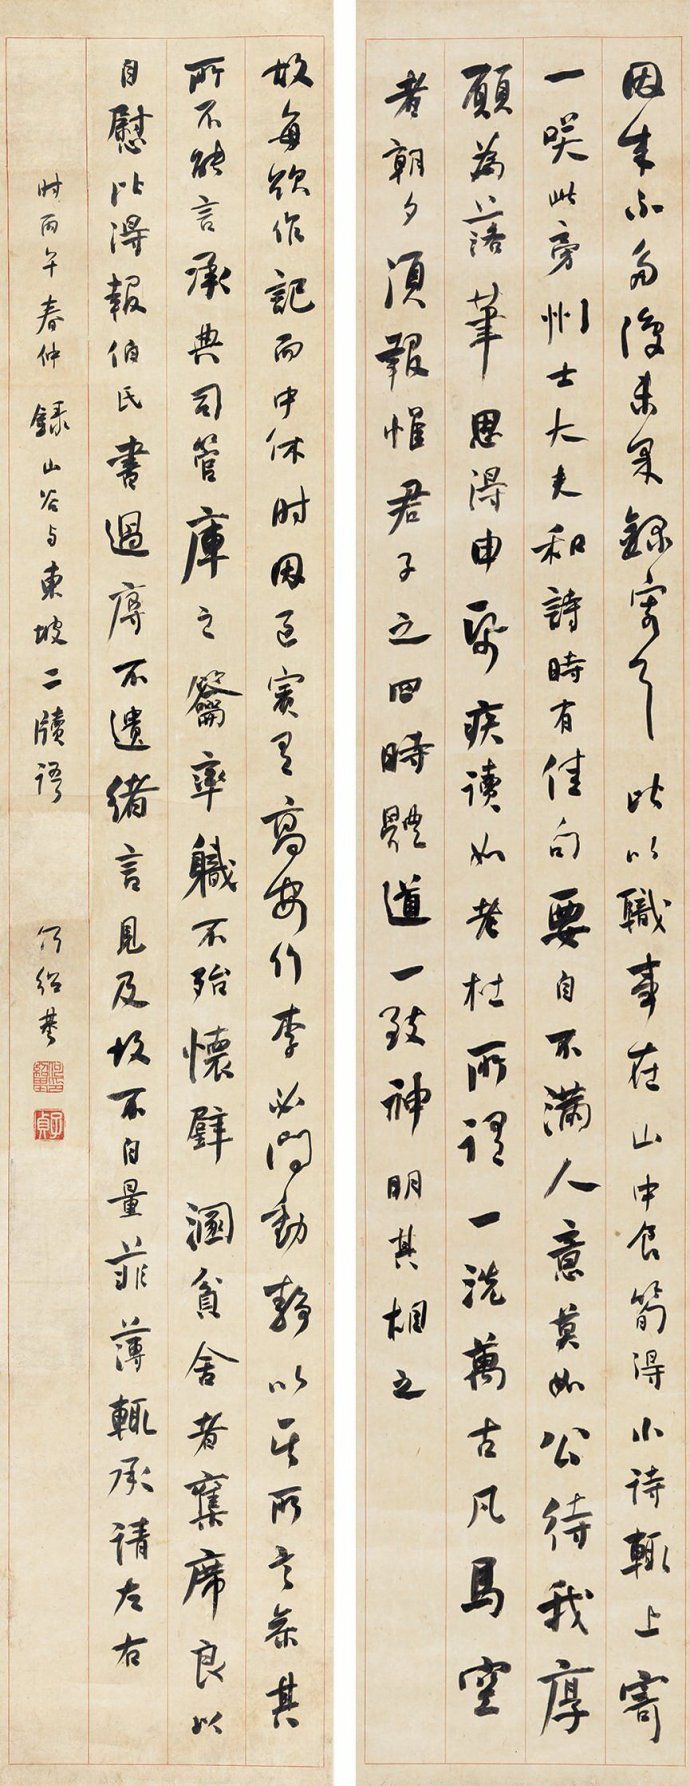 因來不多復未果錄寄耳此以職事在山中食筍得小詩輒上寄
一笑此旁州士大夫和詩時有佳句要自不滿人意莫如公待我厚
願為落筆思得申紙疾讀如老杜所謂一洗萬古凡馬空
者朝夕須報惟君子之四時體道一致神明其相之
故每欲作記而中休時因過賓見高安行李必問動靜以其所言参其
所不能言承典司管庫之籥率職不殆懷璧溷貧舍者奪席良以
自慰比得報伯氏書過辱不遺緒言見及故不自量菲薄輒承請左右
時丙午春仲 錄山谷與東坡二牘語 何紹基